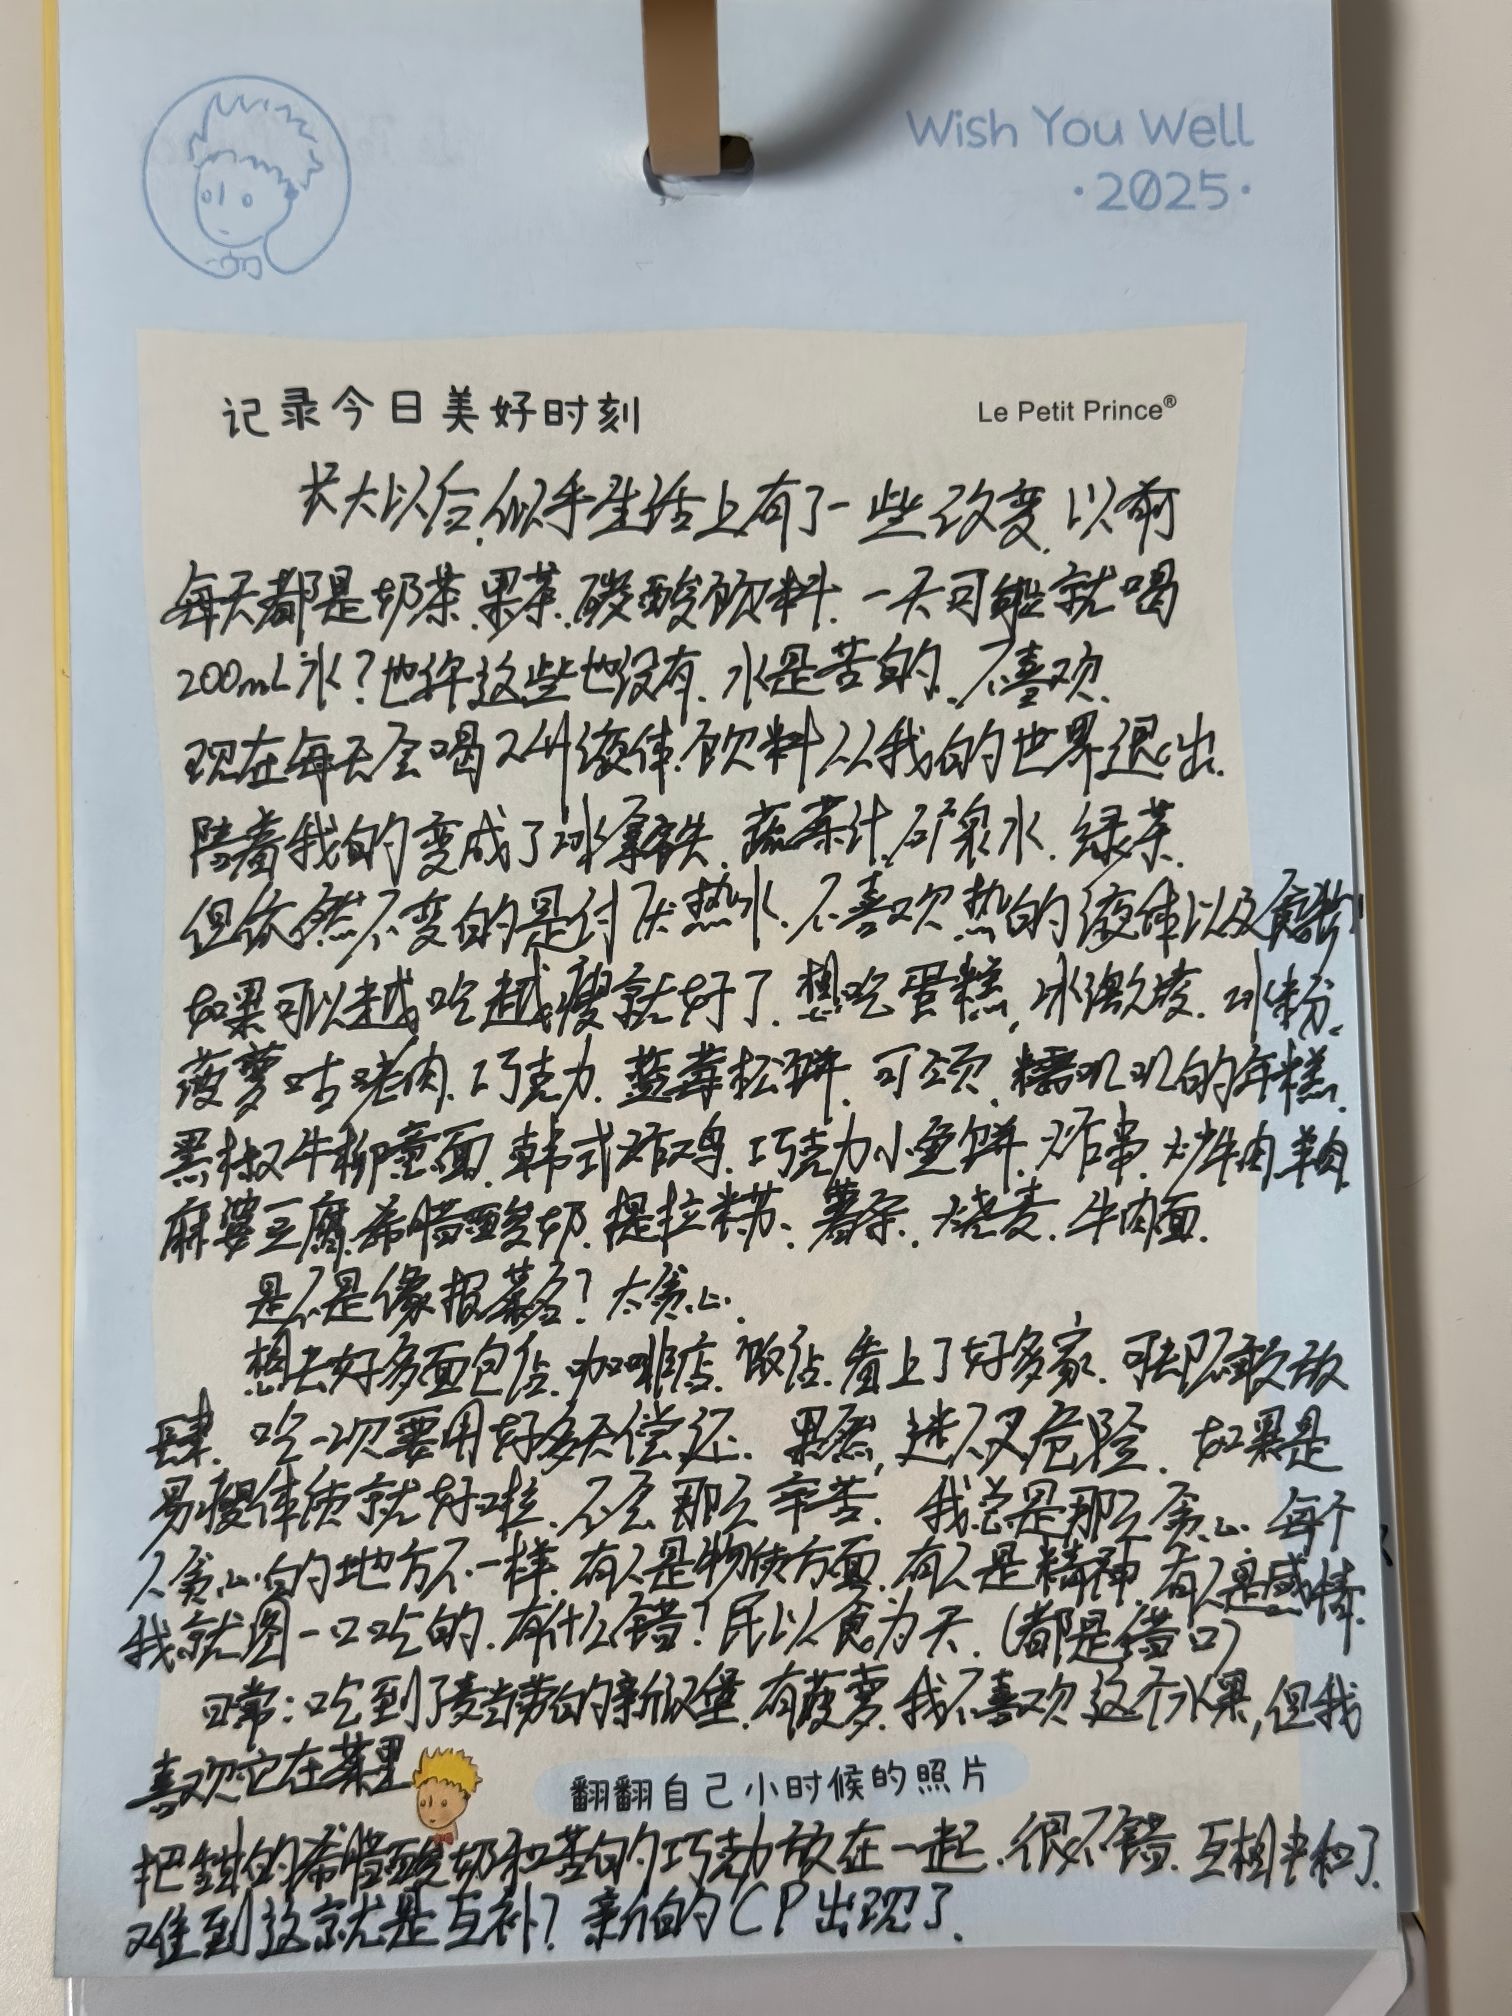 Wish You Well
·2025·
记录今日美好时刻
Le Petit Prince®
长大以后,似乎生活上有了一些改变.以前
每天都是奶茶.果茶.碳酸饮料.一天可能就喝
200mL水?也许这些也没有.水是苦的.不喜欢.
现在每天会喝2-4L液体.饮料从我的世界退出.
陪着我的变成了冰拿铁.蔬菜汁.矿泉水.绿茶.
但依然不变的是讨厌热水.不喜欢热的液体以及食物
如果可以越吃越瘦就好了.想吃蛋糕,冰激凌.冰粉.
菠萝咕咾肉.巧克力.蓝莓松饼.可颂.糯叽叽的年糕.
黑椒牛柳意面.韩式炸鸡.巧克力小鱼饼.炸串.炒牛肉羊肉
麻婆豆腐.希腊酸奶.提拉米苏、薯条.烧麦.牛肉面.
是不是像报菜名?太贪心.
想去好多面包店.咖啡店.饭店.看上了好多家.可却不敢放
肆.吃一次要用好多天偿还.果然,迷人又危险.如果是
易瘦体质就好啦.不会那么辛苦.我总是那么贪心.每个
人贪心的地方不一样.有人是物质方面.有人是精神.有人是感情.
我就图一口吃的.有什么错?民以食为天.(都是借口)
日常:吃到了麦当劳的新汉堡.有菠萝.我不喜欢这个水果,但我
喜欢它在菜里
翻翻自己小时候的照片
把酸的希腊酸奶和苦的巧克力放在一起.很不错.互相中和了.
难到这就是互补?新的CP出现了.